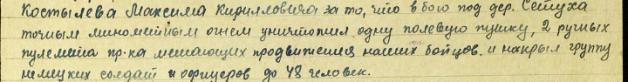 Костылева Максима Кирилловича за то, что в бою под дер. Сетуха
точным миномётным огнем уничтожил одну полевую пушку, 2 ручных
пулемета пр-ка мешающих продвижения наших бойцов и накрыл группу
немецких солдат и офицеров до 48 человек.